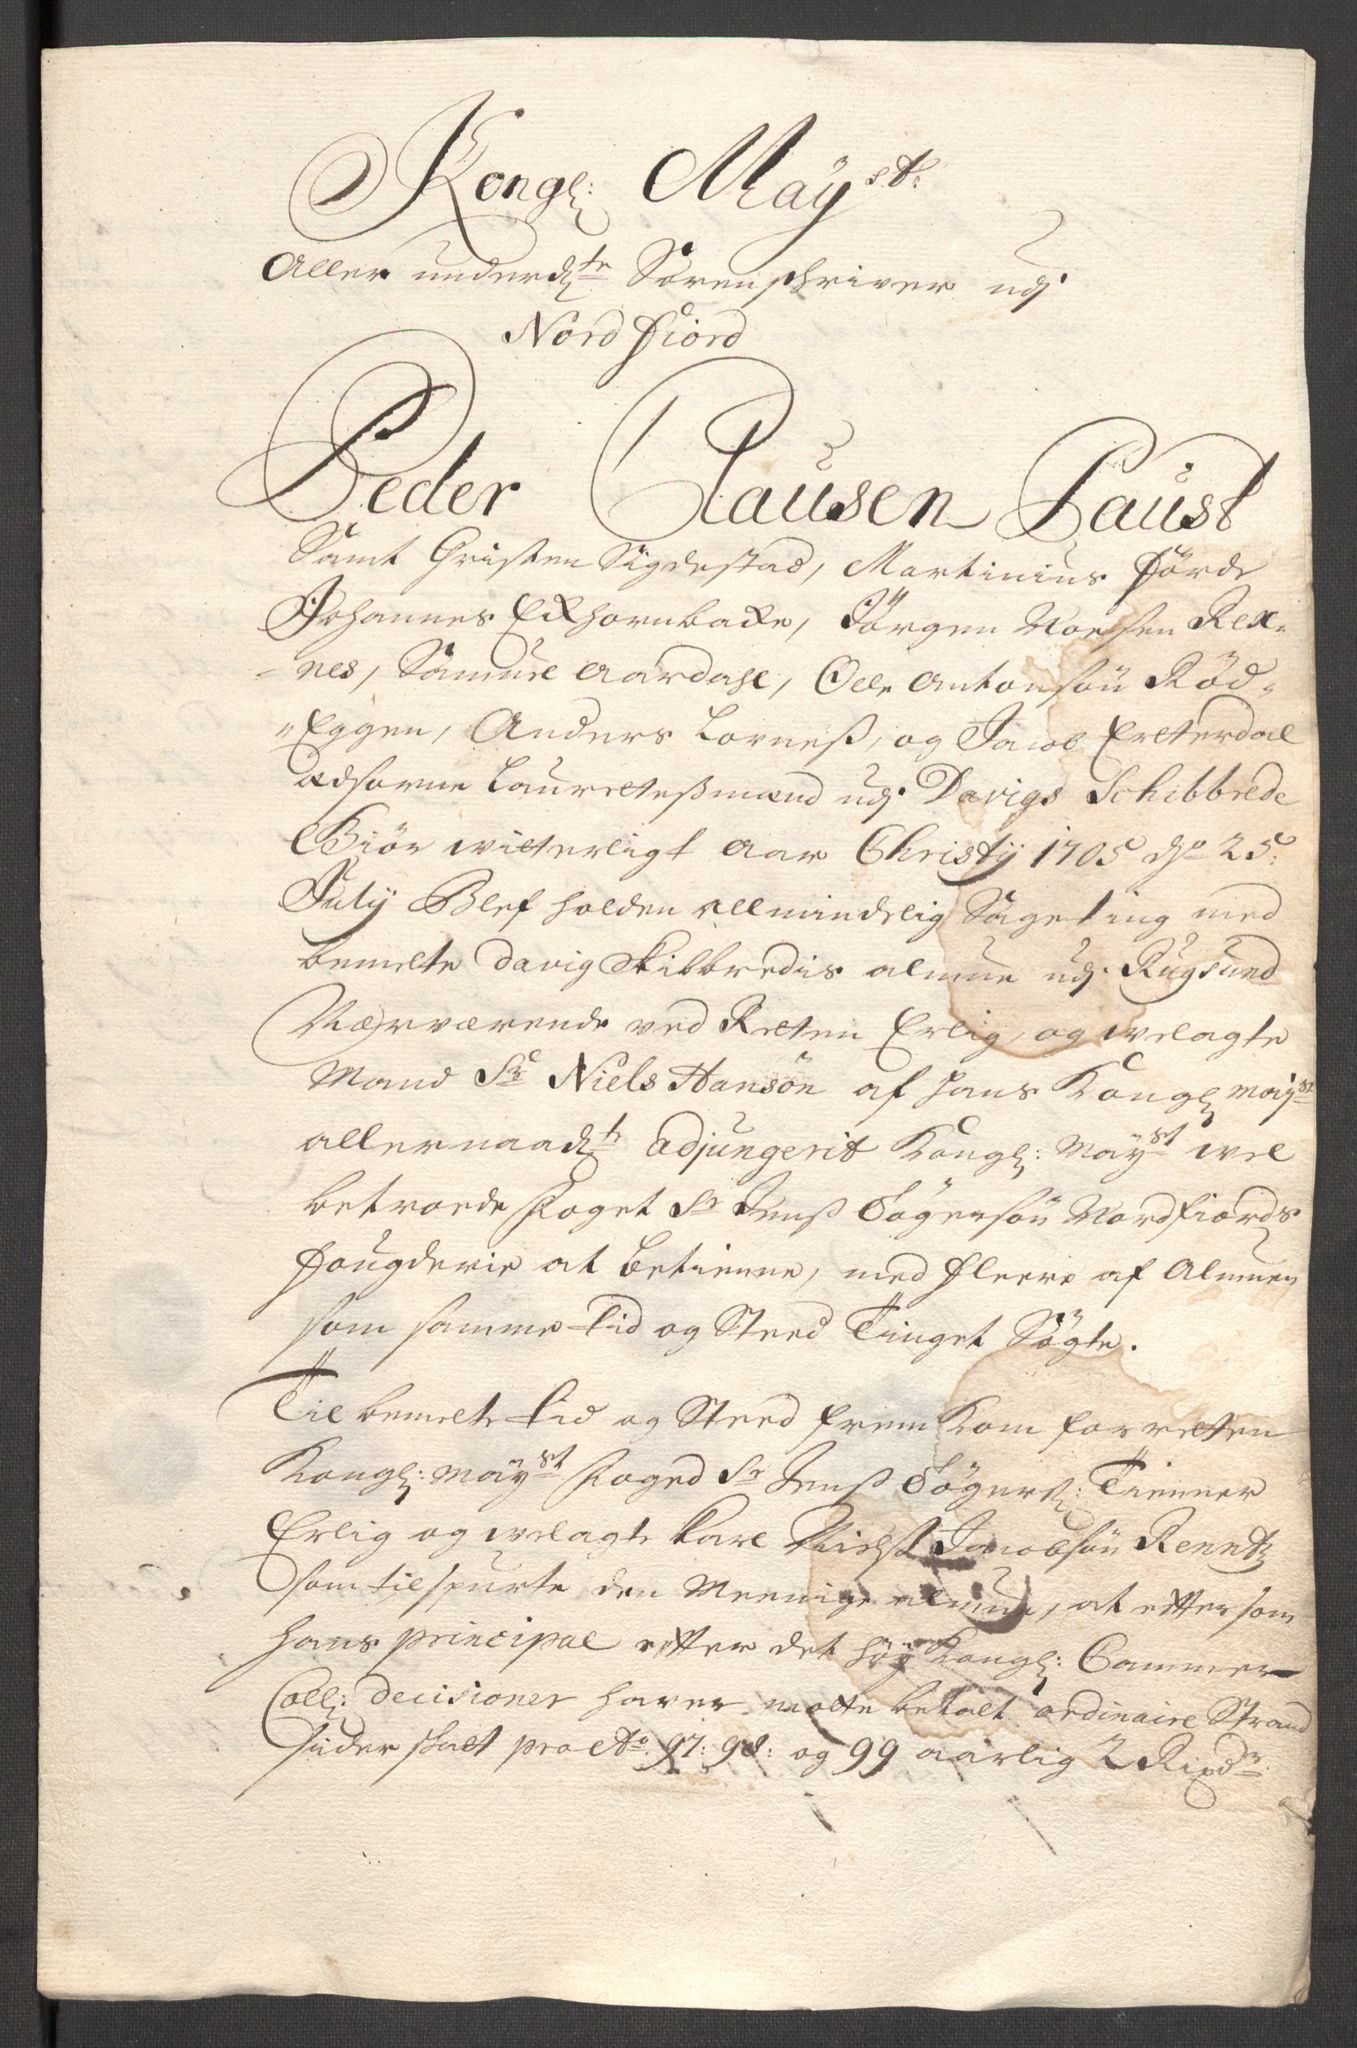 Kongl: Maÿst:
Aller underd:te Sorenschriver udj
Nord Fiord
Peder Clausen Faust
Samt Christen Sigdestad, Martinius Förde
Johannes Ekhornbake, Jörgen Moesen Rex-
-nes, Samuel Aardahl, Olle Antonsön Röd-
-Eggen, Anders Lorneß, og Jacob
Edsorne Laurettesmænd udj Davigs Schibbrede
Giör witterligt Aar Christÿ 1705 dn 25:
Julÿ Blef holden allmindelig Sageting med
bemelte Davig Skibbredis almue udj Rugsund
Nærværende ved Retten Erlig, og welagte
Mand Sr Niels Hansön af hans Kongl Mayst
allernaadt Adjungerit Kongl: Maÿst wel
betroede Foget Sr Jenß Sögensön Nordfiords
Fougderie at betienne, med fleere af Almuen
som samme tid og Steed Tinget Sögte.
Til bemelte tid og Steed frem Kom for retten
Kongl: Maÿst Foged Sr Jenß Sögens: Tienner
Erlig og welagte Karl Nielß Jacobsön
som tilspurte den Meenige almue, at efftersom
hans principal effter det höÿ Kongl: Cammer
Coll: decisioner haver motte betalt ordinaire Strand
sider skatt pro Ao 97: 98: og 99 aarlig 2 Rixdr